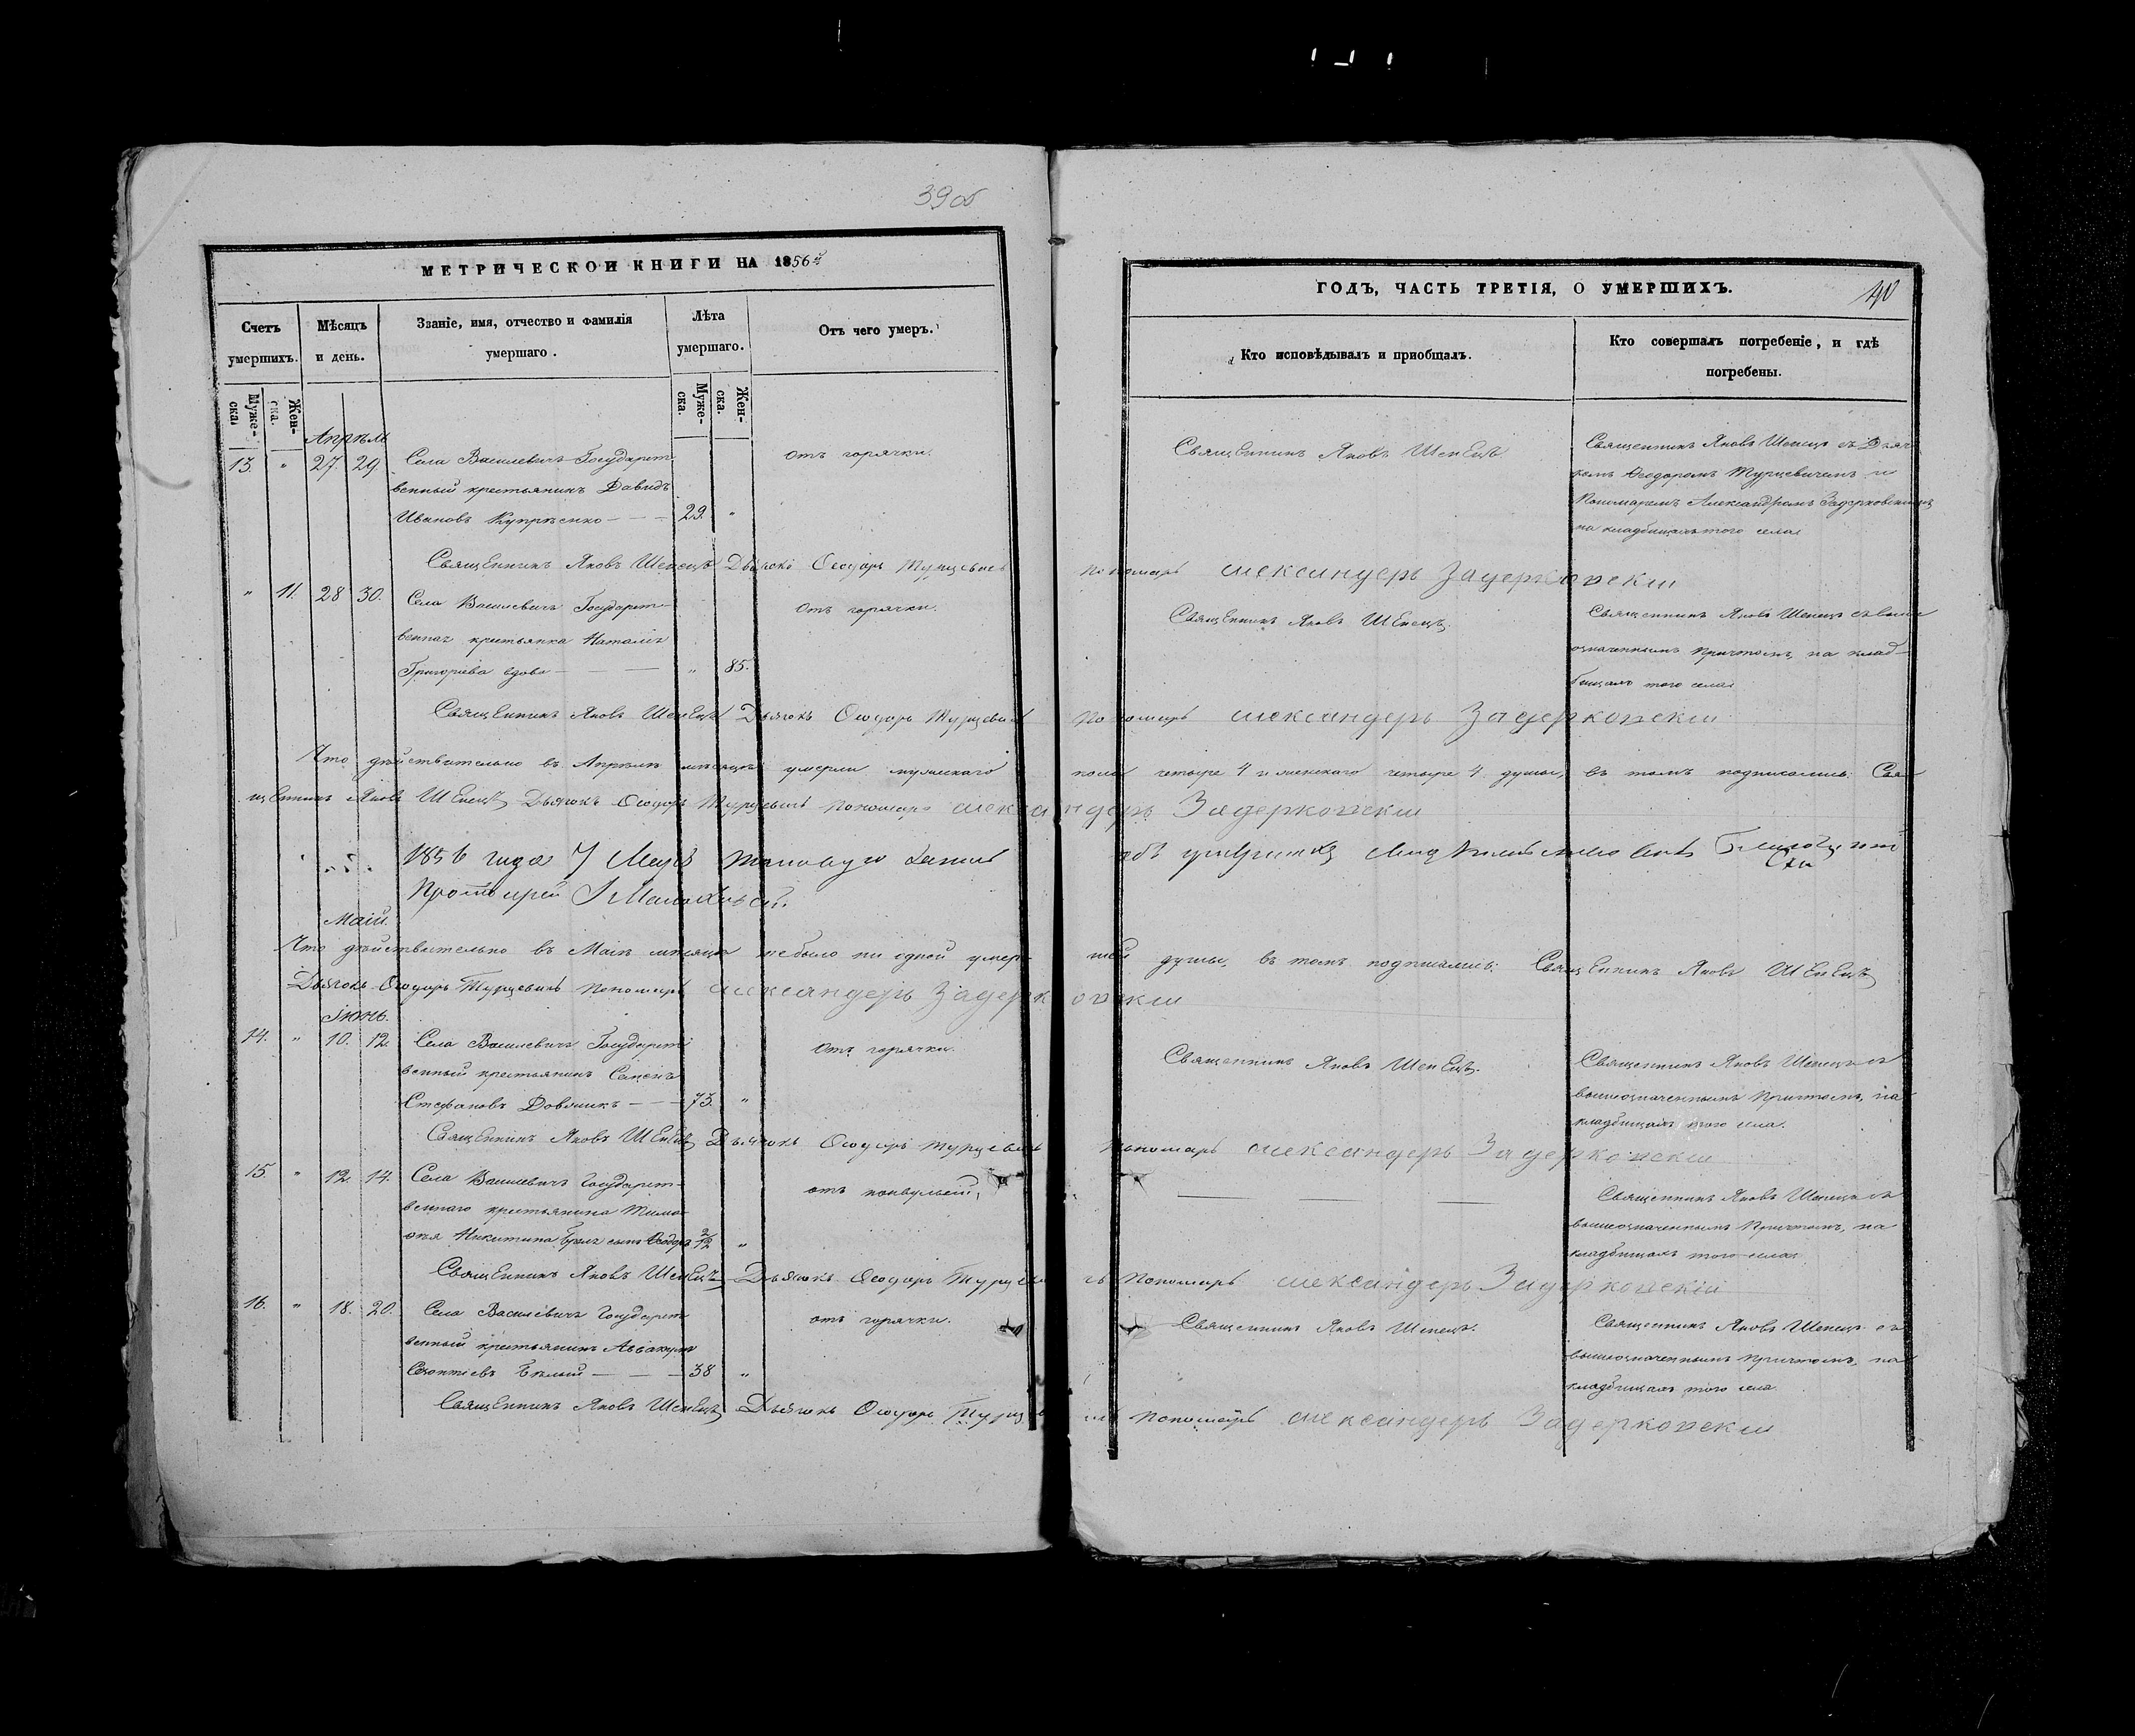 39 об
МЕТРИЧЕСКОЙ КНИГИ НА 1856й
Счетъ умершихъ.
Муже- ска.
Жен- ска.
Мѣсяцъ и день.
Званіе, имя, отчество и фамилія умершаго.
Лѣта умершаго.
Муже- ска.
Жен- ска.
Отъ чего умеръ.
ГОДЪ, ЧАСТЬ ТРЕТІЯ, О УМЕРШИХЪ.
40
Кто исповѣдывалъ и приобщалъ.
Кто совершалъ погребеніе, и гдѣ погребены.
Апрѣль
13. " 27 29. Села Василевичъ Государст-
венный крестьянинъ Давидъ
Ивановъ Купрѣенко - - - 29. "
отъ горячки.
Священникъ Яковъ Шепецъ
Священникъ Яковъ Шепецъ съ Дьяч-
комъ Ѳеодоромъ Турцевичемъ и
Пономаремъ Александромъ Задерковскимъ
на кладбищахъ того села
Священникъ Яковъ Шепецъ Дьячокъ Ѳеодоръ Турцевичъ Пономарь Александеръ Задерковскій
" 11. 28 30. Села Василевичъ Государст-
венная крестьянка Наталія
Григоріева вдова - - - " 85.
Отъ горячки.
Священникъ Яковъ Шепецъ.
Священникъ Яковъ Шепецъ съ выше
означеннымъ Причтомъ, на клад-
бищахъ того села
Священникъ Яковъ Шепецъ Дьячокъ Ѳеодоръ Турцевичъ Пономарь Александеръ Задерковскій
Что дѣйствительно въ Апрѣлѣ мѣсяцѣ умерли мужескаго пола четыре 4 и женскаго четыре 4 души, въ томъ подписались: Свя-
щенникъ Яковъ Шепецъ Дьячокъ Ѳеодоръ Турцевичъ Пономарь Александеръ Задерковскій
1856 года 7
Протоіерей
Маій.
Что дѣйствительно въ Маіѣ мѣсяцѣ небыло ни одной умер- шей души, въ томъ подписались: Священникъ Яковъ Шепецъ
Дьячокъ Ѳеодоръ Турцевичъ Пономарь Александеръ Задерковскій
Іюнь.
14. " 10. 12. Села Василевичъ Государст-
венный крестьянинъ Семенъ
Стефановъ Довжикъ - - - 73. "
Отъ горячки.
Священникъ Яковъ Шепецъ.
Священникъ Яковъ Шепецъ съ
вышеозначеннымъ Причтомъ, на
кладбищахъ того села.
Священникъ Яковъ Шепецъ Дьячокъ Ѳеодоръ Турцевичъ Пономарь Александеръ Задерковскій
15. " 12. 14. Села Василевичъ Государст-
веннаго крестьянина Тимо-
ѳея Никитина сынъ Ѳеодоръ 2/12 "
отъ конвульсій.
Священникъ Яковъ Шепецъ съ
вышеозначеннымъ Причтомъ, на
кладбищахъ того села
Священникъ Яковъ Шепецъ Дьячокъ Ѳеодоръ Турцевичъ Пономарь Александеръ Задерковскій
16. " 18. 20. Села Василевичъ Государст-
венный крестьянинъ Аввакумъ
Бѣлый - - - 38 "
отъ горячки.
Священникъ Яковъ Шепецъ.
Священникъ Яковъ Шепецъ съ
вышеозначеннымъ Причтомъ, на
кладбищахъ того села
Священникъ Яковъ Шепецъ Дьячокъ Ѳеодоръ Турцевичъ Пономарь Александеръ Задерковскій